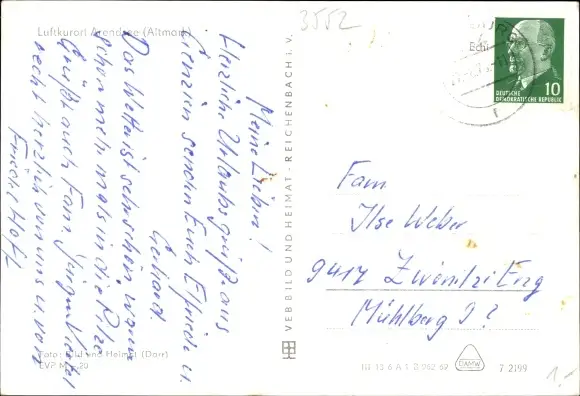 Luftkurort Arendsee (Altmark)
3552
Meine Lieben!
Herzliche Urlaubsgrüße aus
senden Euch Elfriede u.
Gerhard.
Das Wetter ist schon schön, waren
schon mehrmals in die Pilze
Grüßt auch Fam. Jürgen
recht herzlich von uns u. von
Foto: Bild und Heimat (Dorr)
VEB BILD UND HEIMAT · REICHENBACH I. V.
DEUTSCHE
DEMOKRATISCHE REPUBLIK
10
Fam
Ilse Weber
9417 Zwönitz i. Erzg
Mühlberg 9?
DAMW
7 2199
1,-